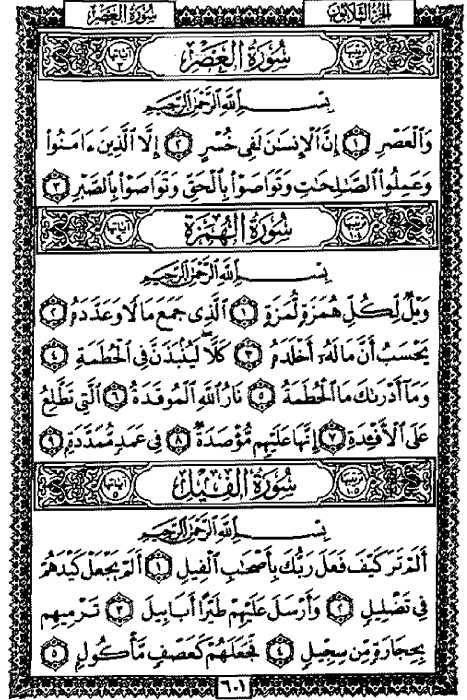 سُورَةُ العَصْرِ الجُزْءُ الثَّلَاثُونَ
سُورَةُ العَصْرِ
بِسْمِ اللَّهِ الرَّحْمَٰنِ الرَّحِيمِ
وَالْعَصْرِ ١ إِنَّ الْإِنسَانَ لَفِي خُسْرٍ ٢ إِلَّا الَّذِينَ ءَامَنُوا
وَعَمِلُوا الصَّالِحَاتِ وَتَوَاصَوْا بِالْحَقِّ وَتَوَاصَوْا بِالصَّبْرِ ٣
سُورَةُ الهُمَزَةِ
بِسْمِ اللَّهِ الرَّحْمَٰنِ الرَّحِيمِ
وَيْلٌ لِّكُلِّ هُمَزَةٍ لُّمَزَةٍ ١ الَّذِي جَمَعَ مَالًا وَعَدَّدَهُ ٢
يَحْسَبُ أَنَّ مَالَهُ أَخْلَدَهُ ٣ كَلَّا لَيُنبَذَنَّ فِي الْحُطَمَةِ ٤
وَمَا أَدْرَىٰكَ مَا الْحُطَمَةُ ٥ نَارُ اللَّهِ الْمُوقَدَةُ ٦ الَّتِي تَطَّلِعُ
عَلَى الْأَفْئِدَةِ ٧ إِنَّهَا عَلَيْهِم مُّؤْصَدَةٌ ٨ فِي عَمَدٍ مُّمَدَّدَةٍ ٩
سُورَةُ الفِيلِ
بِسْمِ اللَّهِ الرَّحْمَٰنِ الرَّحِيمِ
أَلَمْ تَرَ كَيْفَ فَعَلَ رَبُّكَ بِأَصْحَابِ الْفِيلِ ١ أَلَمْ يَجْعَلْ كَيْدَهُمْ
فِي تَضْلِيلٍ ٢ وَأَرْسَلَ عَلَيْهِمْ طَيْرًا أَبَابِيلَ ٣ تَرْمِيهِم
بِحِجَارَةٍ مِّن سِجِّيلٍ ٤ فَجَعَلَهُمْ كَعَصْفٍ مَّأْكُولٍ ٥
٦٠١